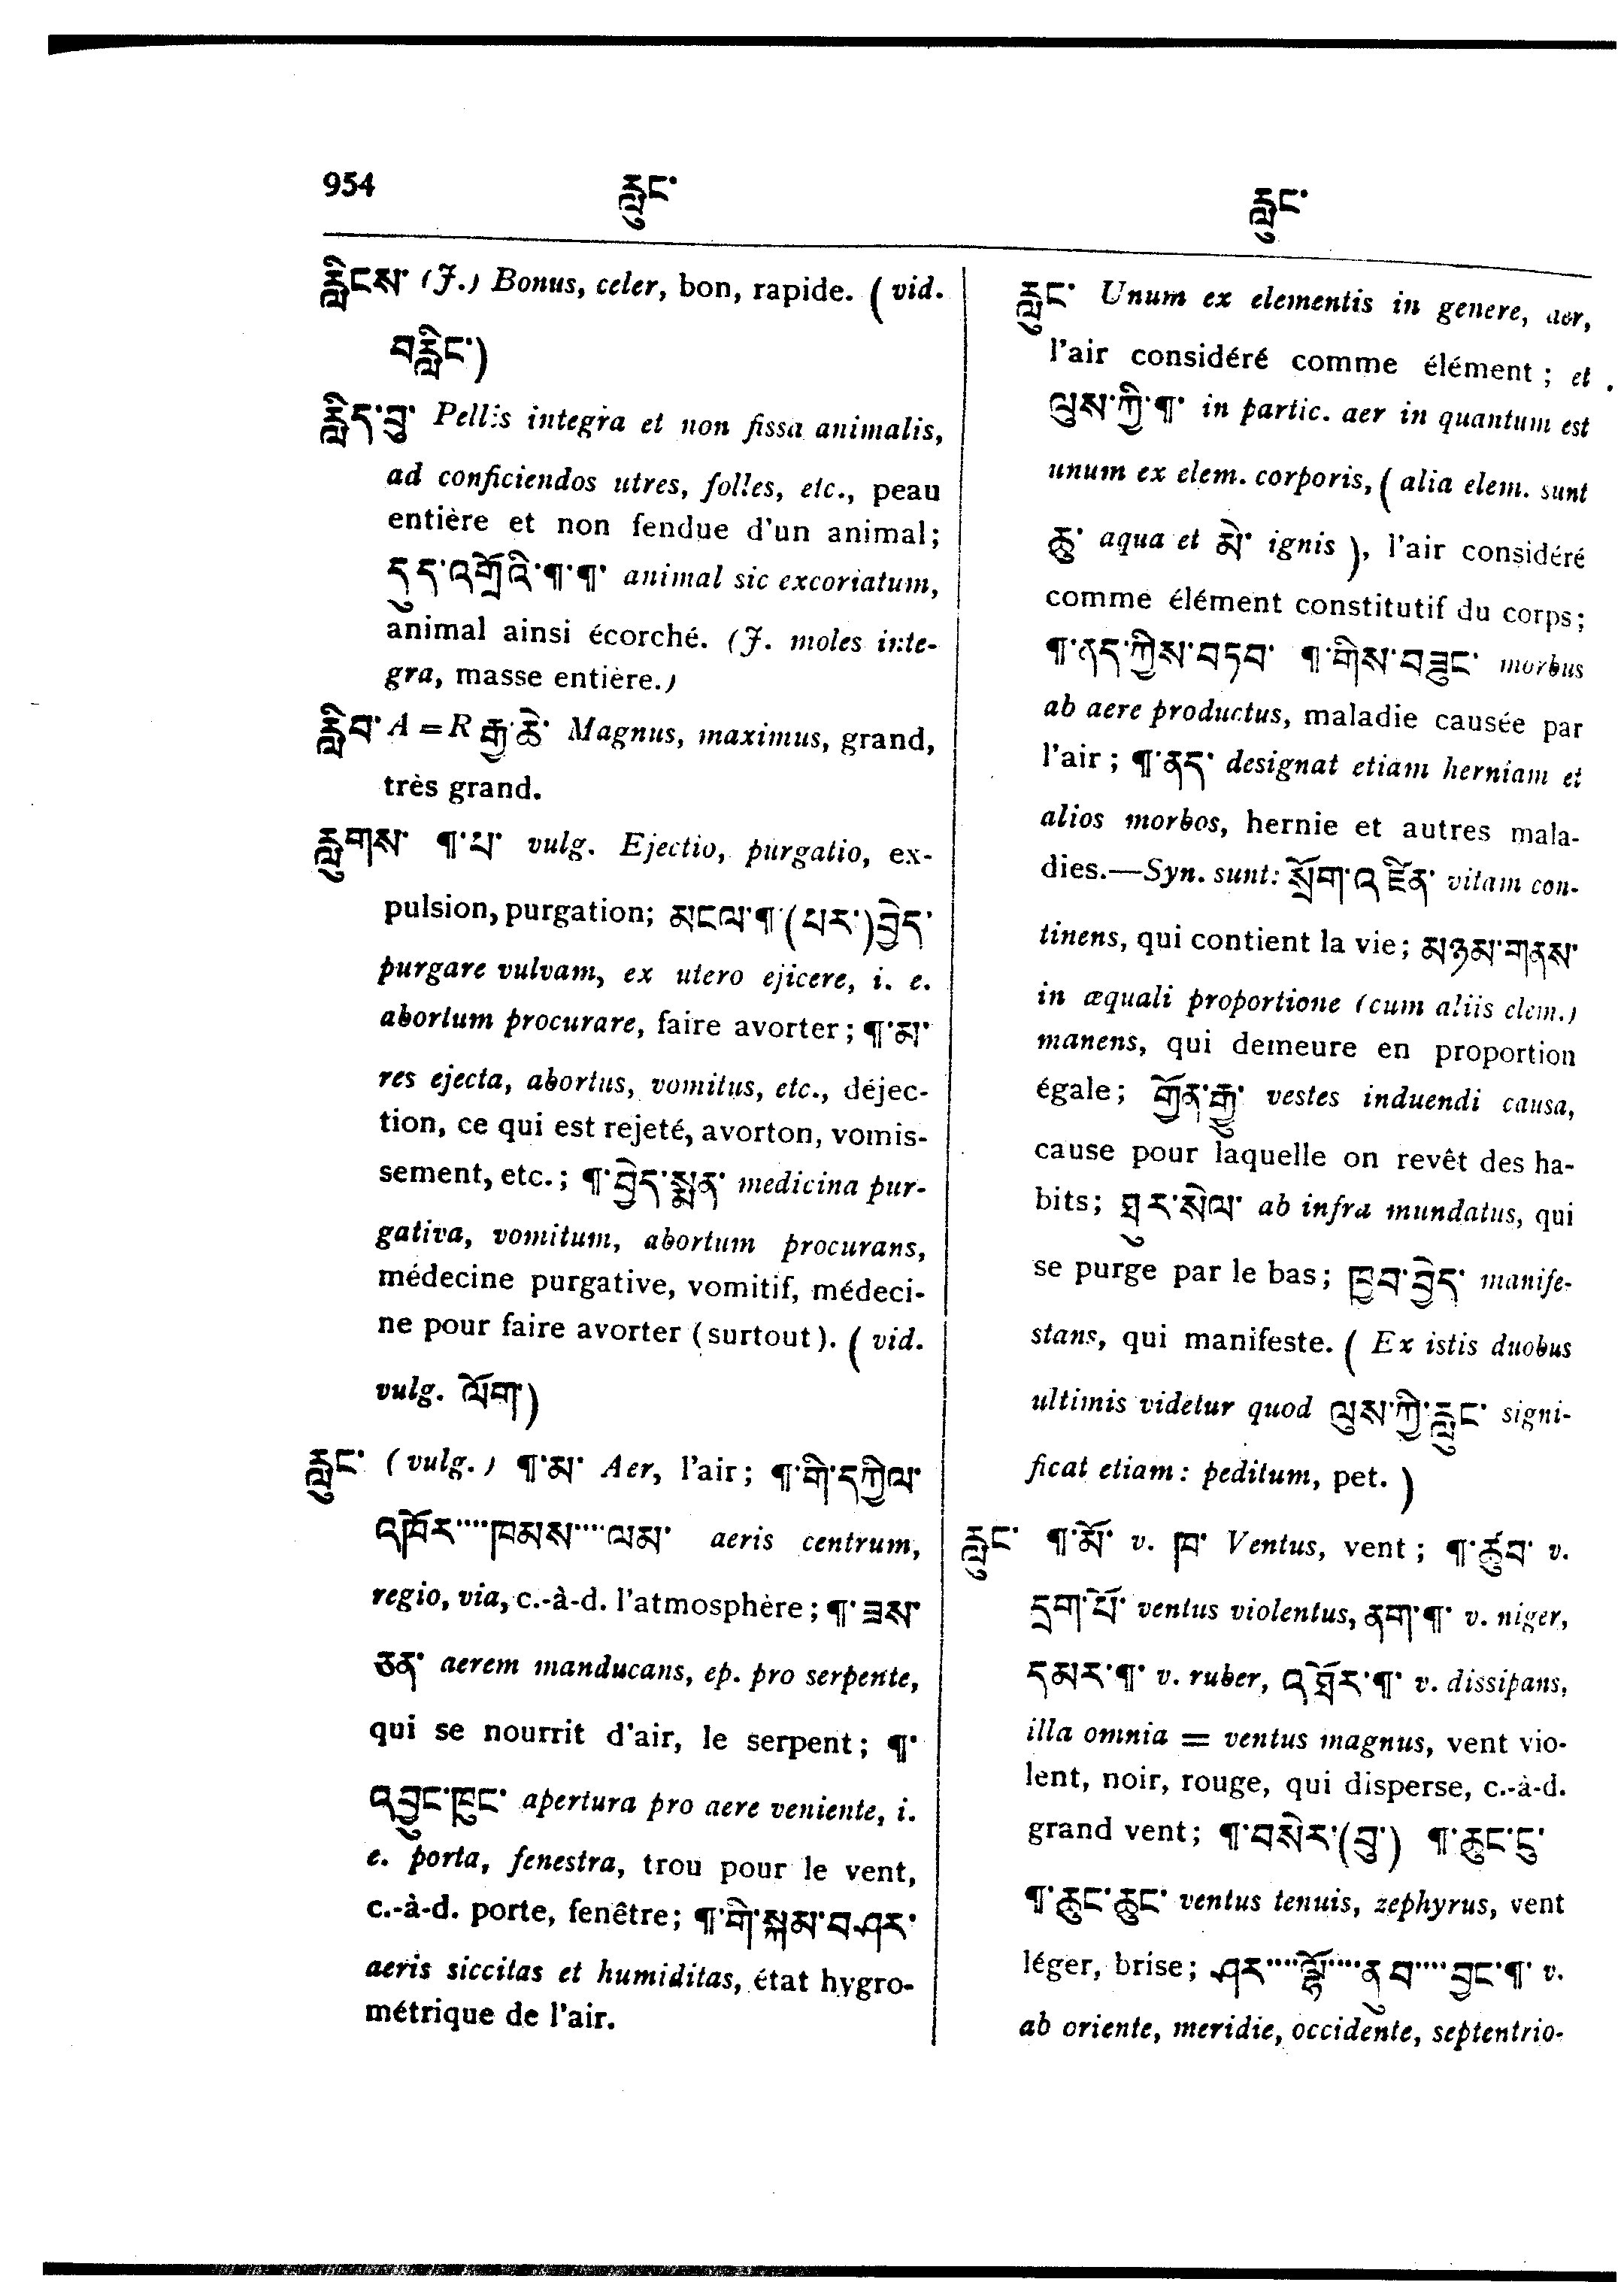 954
རླུང་
རླུང་
རླིངས་ (J.) Bonus, celer, bon, rapide. (vid.
བརླིང་)
རླིད་བུ་ Pellis integra et non fissa animalis,
ad conficiendos utres, folles, etc., peau
entière et non fendue d'un animal;
དུད་འགྲོའི་¶་¶་ animal sic excoriatum,
animal ainsi écorché. (J. moles inte-
gra, masse entière.)
རླིབ་ A = R རྒྱ་ཆེ་ Magnus, maximus, grand,
très grand.
རླུགས་ ¶་པ་ vulg. Ejectio, purgatio, ex-
pulsion, purgation; མངལ་¶་(པར་)བྱེད་
purgare vulvam, ex utero ejicere, i. e.
abortum procurare, faire avorter; ¶་མ་
res ejecta, abortus, vomitus, etc., déjec-
tion, ce qui est rejeté, avorton, vomis-
sement, etc.; ¶་བྱེད་སྨན་ medicina pur-
gativa, vomitum, abortum procurans,
médecine purgative, vomitif, médeci-
ne pour faire avorter (surtout). (vid.
vulg. ལོག་)
རླུང་ (vulg.) ¶་མ་ Aer, l'air; ¶་གི་དཀྱིལ་
འཁོར་····ཁམས་····ལམ་ aeris centrum,
regio, via, c.-à-d. l'atmosphère; ¶་ཟས་
ཅན་ aerem manducans, ep. pro serpente,
qui se nourrit d'air, le serpent; ¶་
འབྱུང་ཁུང་ apertura pro aere veniente, i.
e. porta, fenestra, trou pour le vent,
c.-à-d. porte, fenêtre; ¶་གི་སྐམ་བཤར་
aeris siccitas et humiditas, état hygro-
métrique de l'air.
རླུང་ Unum ex elementis in genere, aer,
l'air considéré comme élément; et
ལུས་ཀྱི་¶་ in partic. aer in quantum est
unum ex elem. corporis, (alia elem. sunt
ཆུ་ aqua et མེ་ ignis), l'air considéré
comme élément constitutif du corps;
¶་ནད་ཀྱིས་བཏབ་ ¶་གིས་བཟུང་ morbus
ab aere productus, maladie causée par
l'air; ¶་ནད་ designat etiam herniam et
alios morbos, hernie et autres mala-
dies.—Syn. sunt: སྲོག་འཛིན་ vitam con-
tinens, qui contient la vie; མཉམ་གནས་
in æquali proportione (cum aliis elem.)
manens, qui demeure en proportion
égale; གྱོན་རྒྱུ་ vestes induendi causa,
cause pour laquelle on revêt des ha-
bits; ཐུར་སེལ་ ab infra mundatus, qui
se purge par le bas; ཁྱབ་བྱེད་ manife-
stans, qui manifeste. (Ex istis duobus
ultimis videtur quod ལུས་ཀྱི་རླུང་ signi-
ficat etiam: peditum, pet.)
རླུང་ ¶་མོ་ v. ཁ་ Ventus, vent; ¶་ཚུབ་ v.
དྲག་པོ་ ventus violentus, ནག་¶་ v. niger,
དམར་¶་ v. ruber, འཐོར་¶་ v. dissipans,
illa omnia = ventus magnus, vent vio-
lent, noir, rouge, qui disperse, c.-à-d.
grand vent; ¶་བསེར་(བུ་) ¶་ཆུང་ངུ་
¶་ཆུང་ཆུང་ ventus tenuis, zephyrus, vent
léger, brise; ཤར་····ལྷོ་····ནུབ་····བྱང་¶་ v.
ab oriente, meridie, occidente, septentrio-